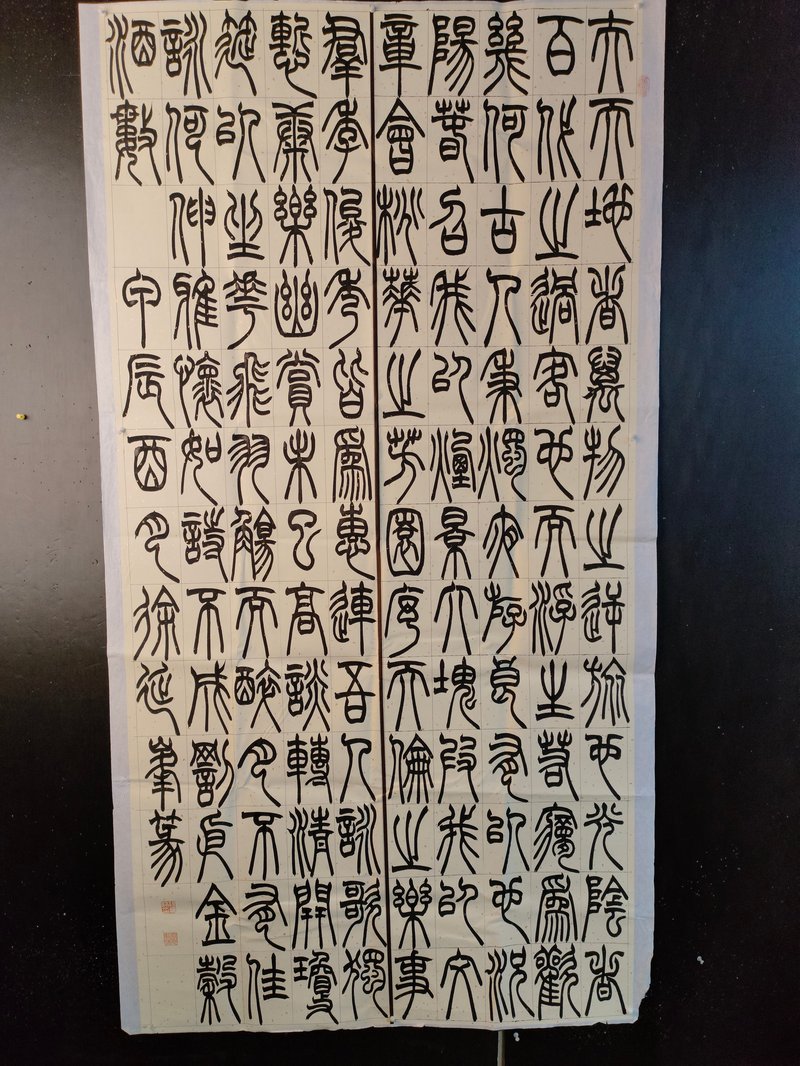 夫天地者萬物之逆旅也光陰者
百代之過客也而浮生若夢爲歡
幾何古人秉燭夜遊良有以也況
陽春召我以煙景大塊假我以文
章會桃華之芳園序天倫之樂事
羣季俊秀皆爲惠連吾人詠歌獨
慙康樂幽賞未已高談轉清開瓊
筵以坐花飛羽觴而醉月不有佳
詠何伸雅懷如詩不成罰依金穀
酒數 甲辰酉月徐延峯篆